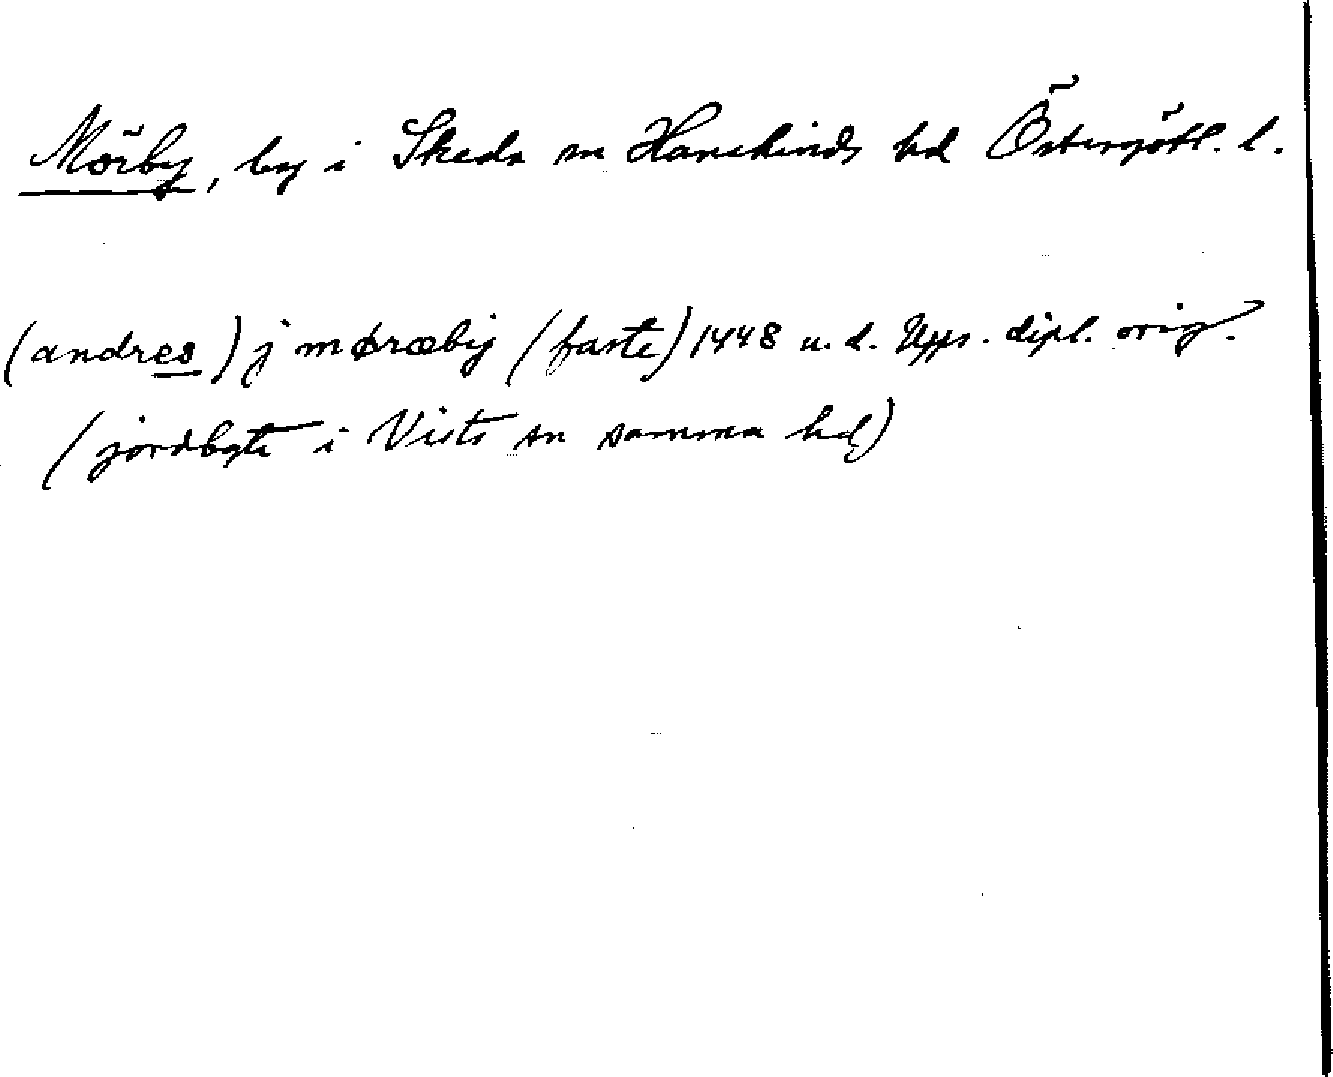 Mörby, by i Skeda sn Hanekinds hd Östergötl. l.
(andres) j møræby (faste) 1448 u. d. Upps. dipl. orig.
(jordbyte i Vists sn samma hd)